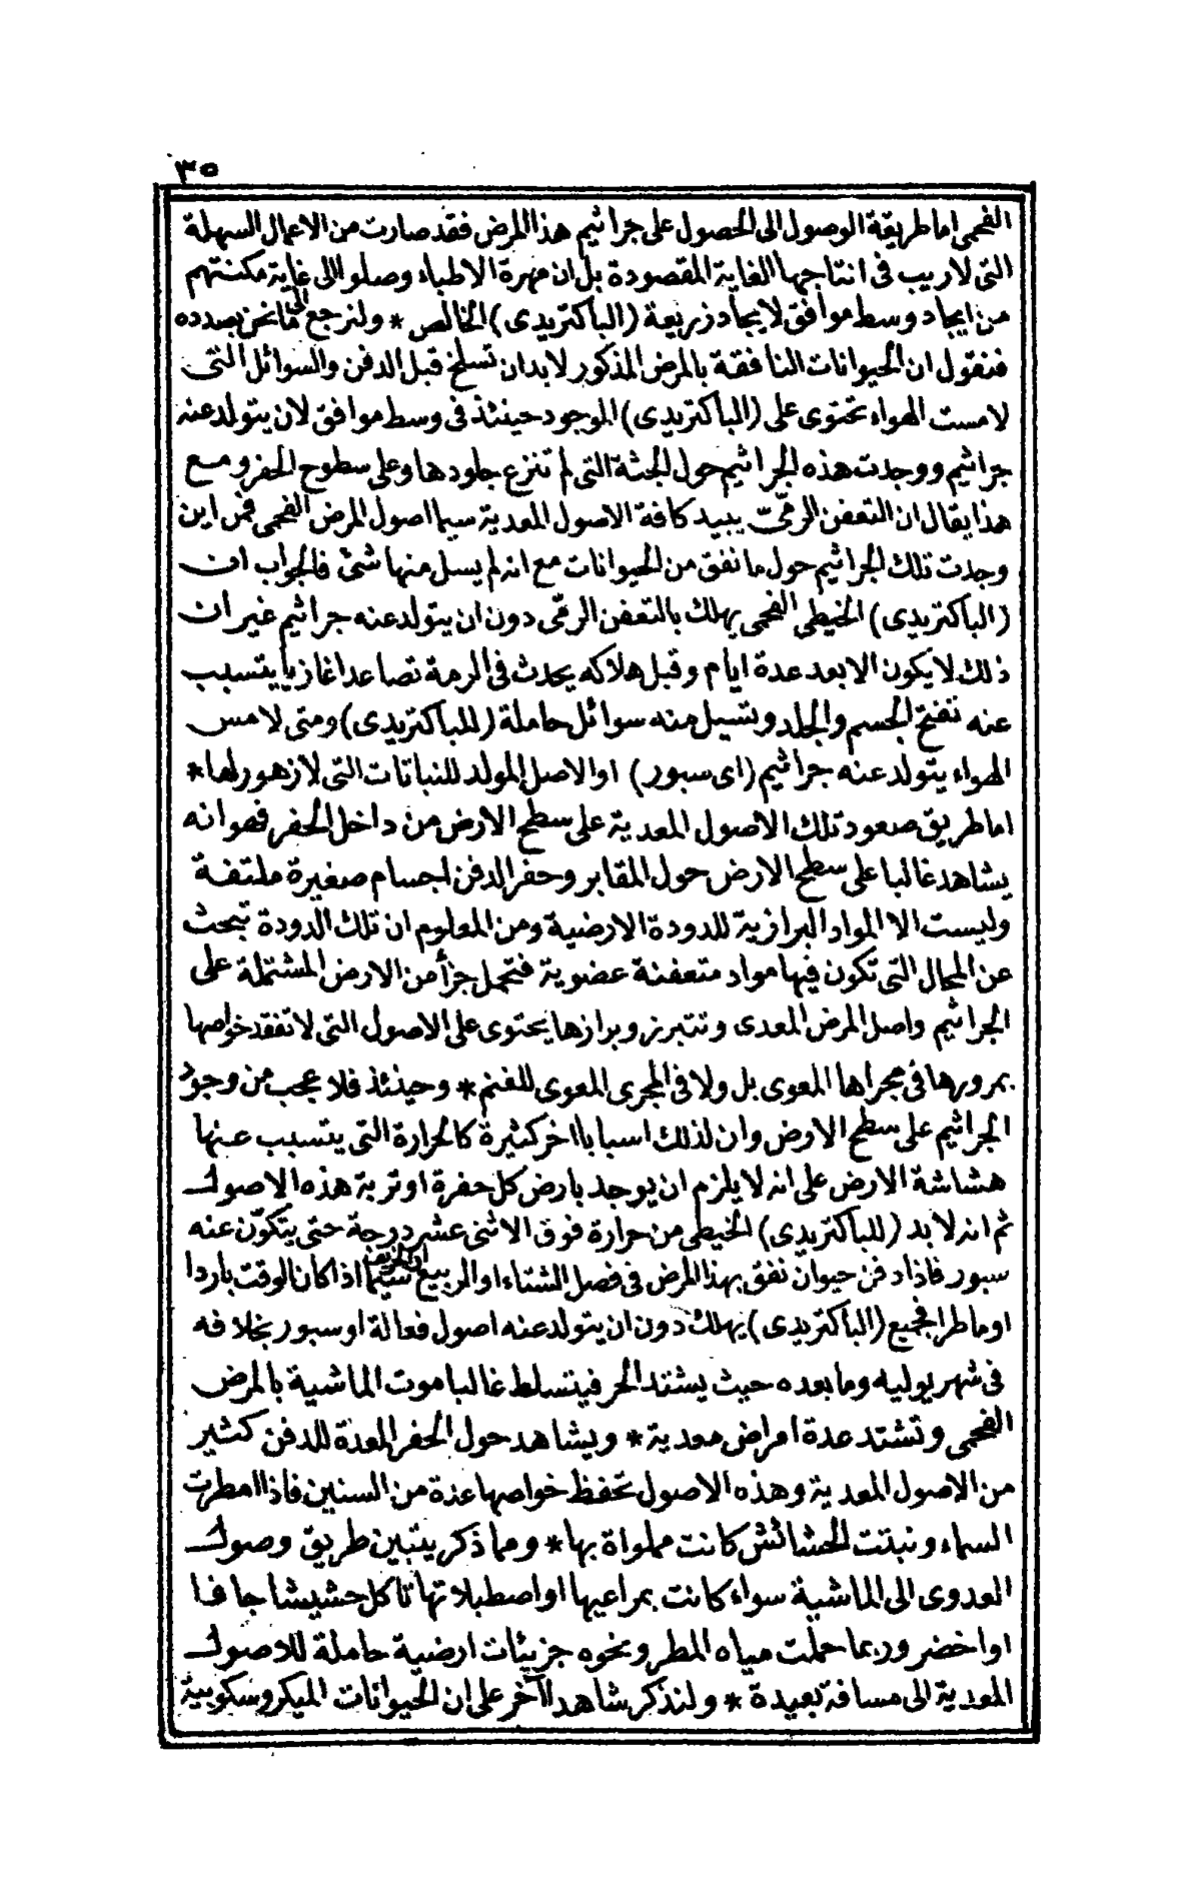 ٣٥
الفحمى اما طريقة الوصول الى الحصول على جراثيم هذا المرض فقد صارت من الاعمال السهلة
التى لا ريب فى انتاجها الغاية المقصودة بل ان مهرة الاطباء وصلوا الى غاية مكنتهم
من ايجاد وسط موافق لايجاد زريعة (الباكتريدى) الخالص * ولنرجع الى ما نحن بصدده
فنقول ان الحيوانات النافقة بالمرض المذكور لابد ان تسلخ قبل الدفن والسوائل التى
لامست الهواء تحتوى على (الباكتريدى) الموجود حينئذ فى وسط موافق لان يتولد عنه
جراثيم ووجدت هذه الجراثيم حول الجثة التى لم تنزع جلودها وعلى سطوح الحفر ومع
هذا يقال ان التعفن الرمّىّ يبيد كافة الاصول المعدية سيما اصول المرض الفحمى فمن اين
وجدت تلك الجراثيم حول ما نفق من الحيوانات مع انه لم يسل منها شئ فالجواب ان
(الباكتريدى) الخيطى الفحمى يهلك بالتعفن الرمّى دون ان يتولد عنه جراثيم غير ان
ذلك لا يكون الا بعد عدة ايام وقبل هلاكه يحدث فى الرمة تصاعدا غازيا يتسبب
عنه نفخ الجسم والجلد وتسيل منه سوائل حاملة (للباكتريدى) ومتى لامس
الهواء يتولد عنه جراثيم (اى سبور) او الاصل المولد للنباتات التى لا زهور لها *
اما طريق صعود تلك الاصول المعدية على سطح الارض من داخل الحفر فهو انه
يشاهد غالبا على سطح الارض حول المقابر وحفر الدفن اجسام صغيرة ملتفة
وليست الا المواد البرازية للدودة الارضية ومن المعلوم ان تلك الدودة تبحث
عن المحال التى تكون فيها مواد متعفنة عضوية فتحمل جزأ من الارض المشتملة على
الجراثيم واصل المرض المعدى وتتبرز وبرازها يحتوى على الاصول التى لا تفقد خواصها
بمرورها فى مجراها المعوى بل ولا فى المجرى المعوى للغنم * وحينئذ فلا عجب من وجود
الجراثيم على سطح الارض وان لذلك اسبابا اخر كثيرة كالحرارة التى يتسبب عنها
هشاشة الارض على انه لا يلزم ان يوجد بارض كل حفرة او تربة هذه الاصول
ثم انه لابد (للباكتريدى) الخيطى من حرارة فوق الاثنى عشر درجة حتى يتكوّن عنه
سبور فاذا دفن حيوان نفق بهذا المرض فى فصل الشتاء او الربيع او الخريف سيما اذا كان الوقت باردا
او ماطرا فجميع (الباكتريدى) يهلك دون ان يتولد عنه اصول فعالة او سبور بخلافه
فى شهر يوليه وما بعده حيث يشتد الحر فيتسلط غالبا موت الماشية بالمرض
الفحمى وتشتد عدة امراض معدية * ويشاهد حول الحفر المعدة للدفن كثير
من الاصول المعدية وهذه الاصول تحفظ خواصها عدة من السنين فاذا امطرت
السماء ونبتت الحشائش كانت مملواة بها * ومما ذكر يتبين طريق وصول
العدوى الى الماشية سواء كانت بمراعيها او اصطبلاتها تاكل حشيشا جافا
او اخضر وربما حملت مياه المطر ونحوه جزيئات ارضية حاملة للاصول
المعدية الى مسافة بعيدة * ولنذكر شاهدا آخر على ان الحيوانات الميكروسكوبية